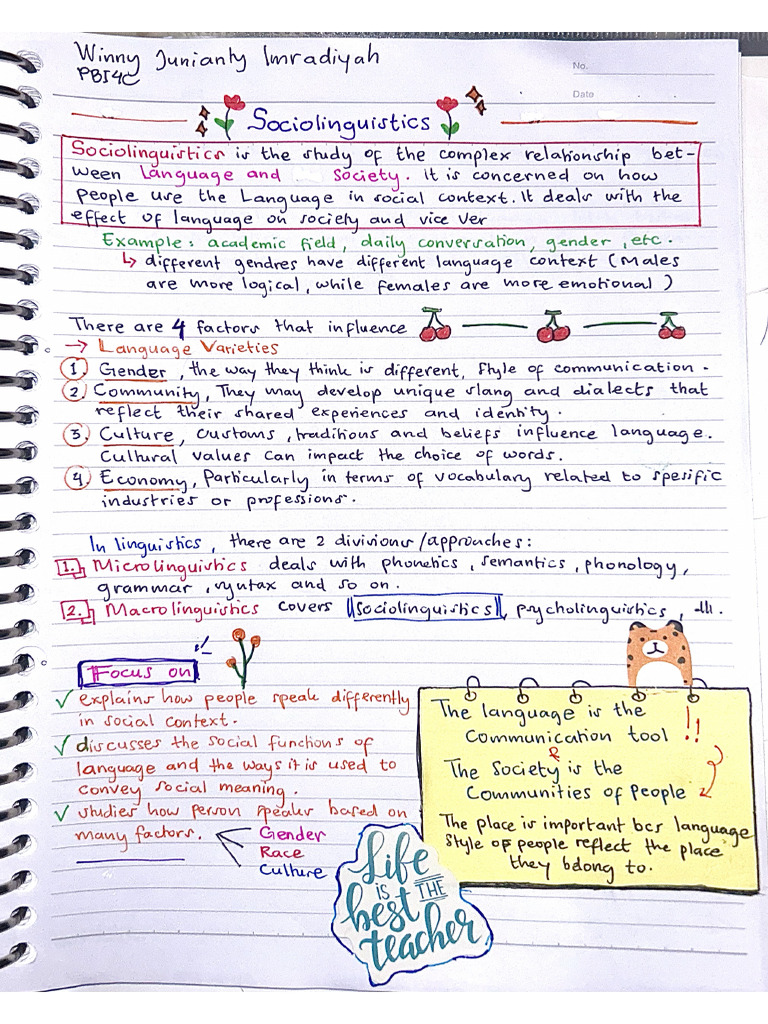 Winny Junianty Imradiyah
PBI4C
No.
Date
Sociolinguistics
Sociolinguistics is the study of the complex relationship bet-
ween Language and Society. it is concerned on how
people use the Language in social context. It deals with the
effect of language on society and vice ver
Example: academic field, daily conversation, gender, etc.
↳ different gendres have different language context (Males
are more logical, while females are more emotional)
There are 4 factors that influence
→ Language Varieties
1 Gender, the way they think is different, style of communication.
2 Community, They may develop unique slang and dialects that
reflect their shared experiences and identity.
3. Culture, customs, traditions and beliefs influence language.
Cultural values can impact the choice of words.
4. Economy, Particularly in terms of vocabulary related to spesific
industries or professions.
In linguistics, there are 2 divisions/approaches:
1. Microlinguistics deals with phonetics, semantics, phonology,
grammar, syntax and so on.
2. Macrolinguistics covers sociolinguistics, psycholinguistics, dll.
Focus on
✓ explains how people speak differently
in social context.
✓ discusses the social functions of
language and the ways it is used to
convey social meaning.
✓ studies how person speaks based on
many factors.
Gender
Race
Culture
The language is the
Communication tool !!
&
The Society is the
Communities of People
The place is important bcs language
style of people reflect the place
they belong to.
Life
is THE
best
teacher